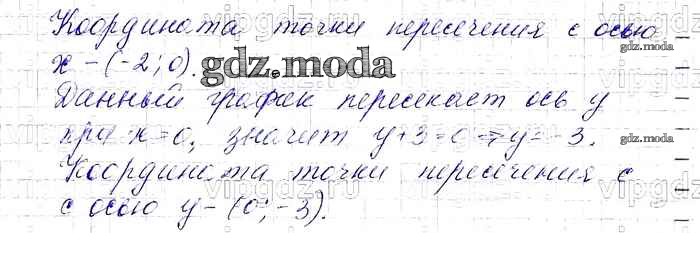 Координата точки пересечения с осью
x – (-2; 0).
Данный график пересекает ось y
при x=0, значит y+3=0 ⇒ y=-3.
Координата точки пересечения с
с осью y – (0; -3).
gdz.moda
gdz.moda
gdz.moda
vipgdz.ru
vipgdz.ru